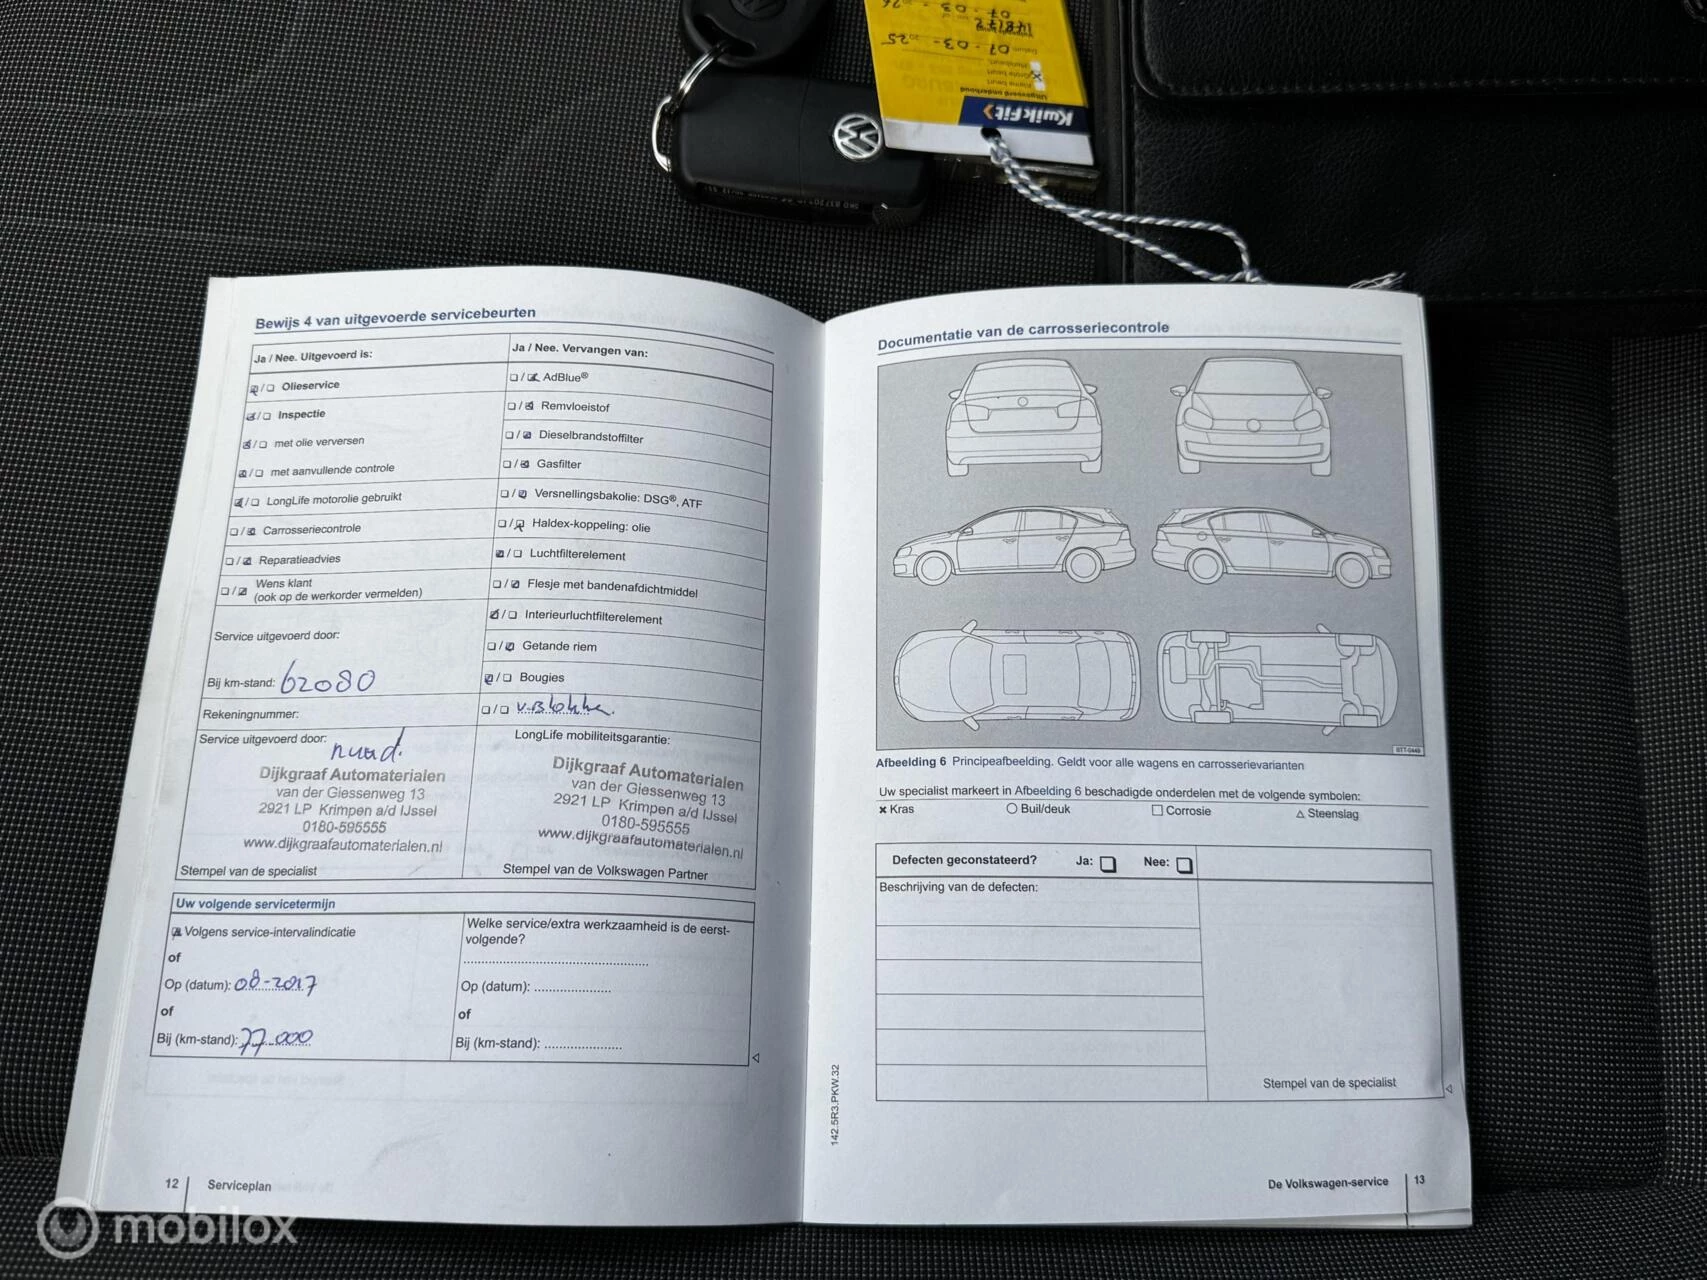 07-03-26
148172
Datum 07-03-2025
Grote beurt
Kleine beurt
Uitgevoerd onderhoud
KwikFit
Bewijs 4 van uitgevoerde servicebeurten
Ja / Nee. Uitgevoerd is:
Olieservice
Inspectie
met olie verversen
met aanvullende controle
LongLife motorolie gebruikt
Carrosseriecontrole
Reparatieadvies
Wens klant
(ook op de werkorder vermelden)
Service uitgevoerd door:
Bij km-stand: 62080
Rekeningnummer:
Service uitgevoerd door:
Dijkgraaf Automaterialen
van der Giessenweg 13
2921 LP Krimpen a/d IJssel
0180-595555
www.dijkgraafautomaterialen.nl
Stempel van de specialist
Ja / Nee. Vervangen van:
AdBlue®
Remvloeistof
Dieselbrandstoffilter
Gasfilter
Versnellingsbakolie: DSG®, ATF
Haldex-koppeling: olie
Luchtfilterelement
Flesje met bandenafdichtmiddel
Interieurluchtfilterelement
Getande riem
Bougies
LongLife mobiliteitsgarantie:
Dijkgraaf Automaterialen
van der Giessenweg 13
2921 LP Krimpen a/d IJssel
0180-595555
www.dijkgraafautomaterialen.nl
Stempel van de Volkswagen Partner
Uw volgende servicetermijn
Volgens service-intervalindicatie
of
Op (datum): 08-2017
of
Bij (km-stand): 77.000
Welke service/extra werkzaamheid is de eerst-
volgende?
Op (datum):
of
Bij (km-stand):
12 Serviceplan
142.5R3.PKW.32
Documentatie van de carrosseriecontrole
BTT-0449
Afbeelding 6 Principeafbeelding. Geldt voor alle wagens en carrosserievarianten
Uw specialist markeert in Afbeelding 6 beschadigde onderdelen met de volgende symbolen:
Kras Buil/deuk Corrosie Steenslag
Defecten geconstateerd? Ja: Nee:
Beschrijving van de defecten:
Stempel van de specialist
De Volkswagen-service 13
mobilox